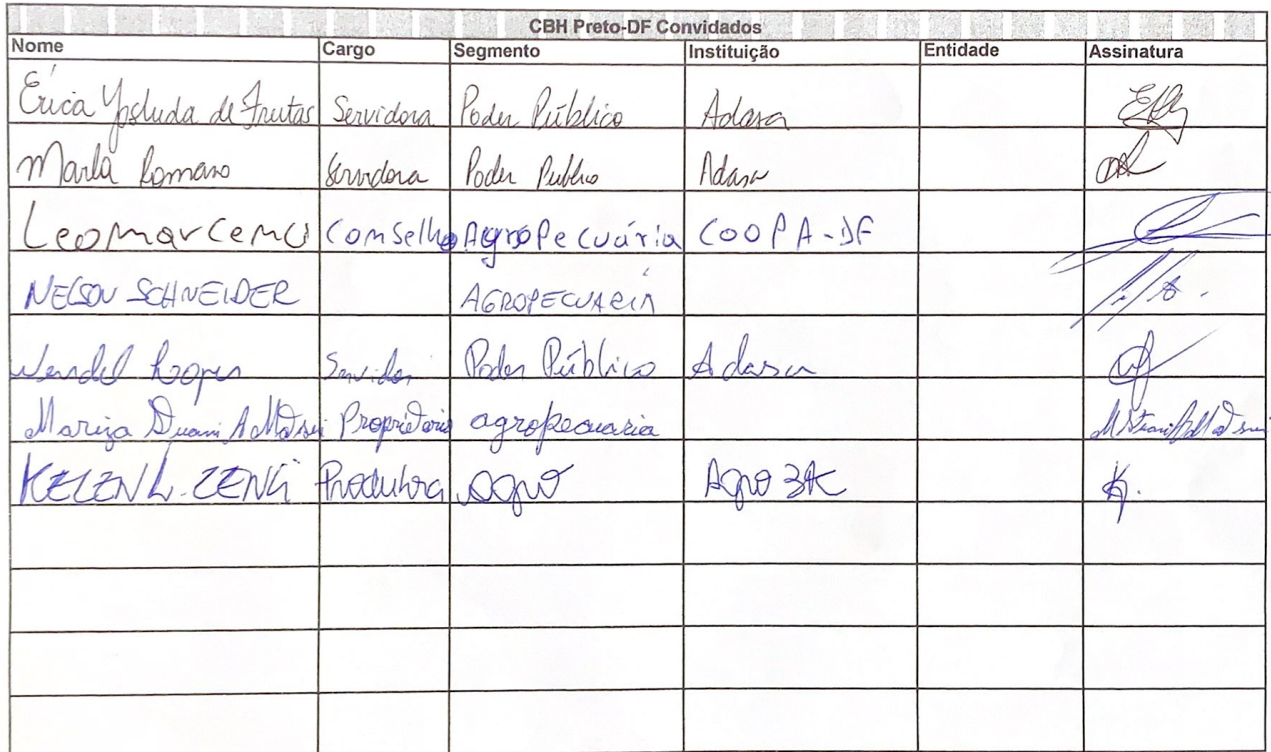 CBH Preto-DF Convidados
Nome Cargo Segmento Instituição Entidade Assinatura
Érica Yoshida de Freitas Servidora Poder Público Adasa
Marla Romano Servidora Poder Publico Adasa
Leomar Cenci Comselho Agropecuária COOPA-DF
NELSON SCHNEIDER AGROPECUÁRIA
Wendel Lopes Servidor Poder Público Adasa
Mariza Proprietaria agropecuaria
KELEN L. ZENCI Produtora agro Agro 3K